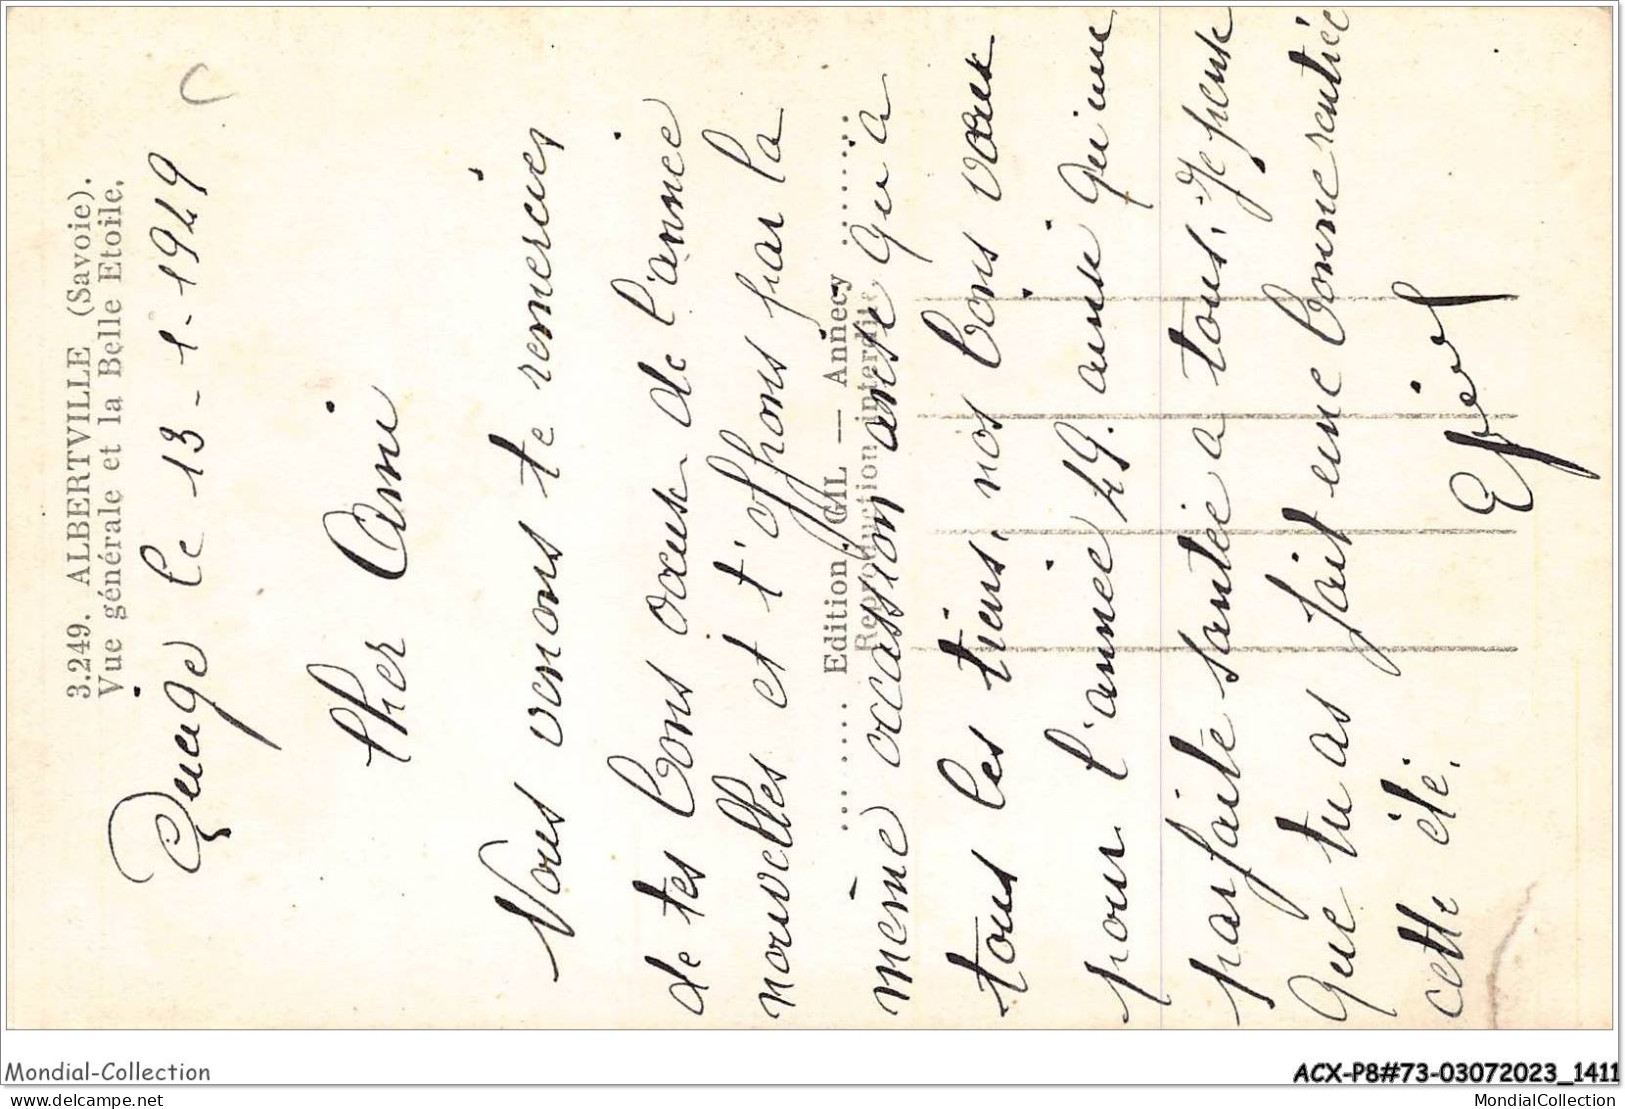 3.249. ALBERTVILLE (Savoie).
Vue générale et la Belle Etoile.
le 13-1-1949
Cher Ami
Nous venons te remercier
de tes bons vœux de l'année
nouvelles et t'offrons par la
même occassion ainsi qu'a
tous les tiens, nos bons vœux
pour l'année 49. ainsi qu'une
parfaite santée a tous. Je pense
que tu as fait une bonne rentrée
cette été.
Edition GIL — Annecy
Reproduction interdite
Mondial-Collection
ACX-P8#73-03072023_1411
delcampe.net
MondialCollection